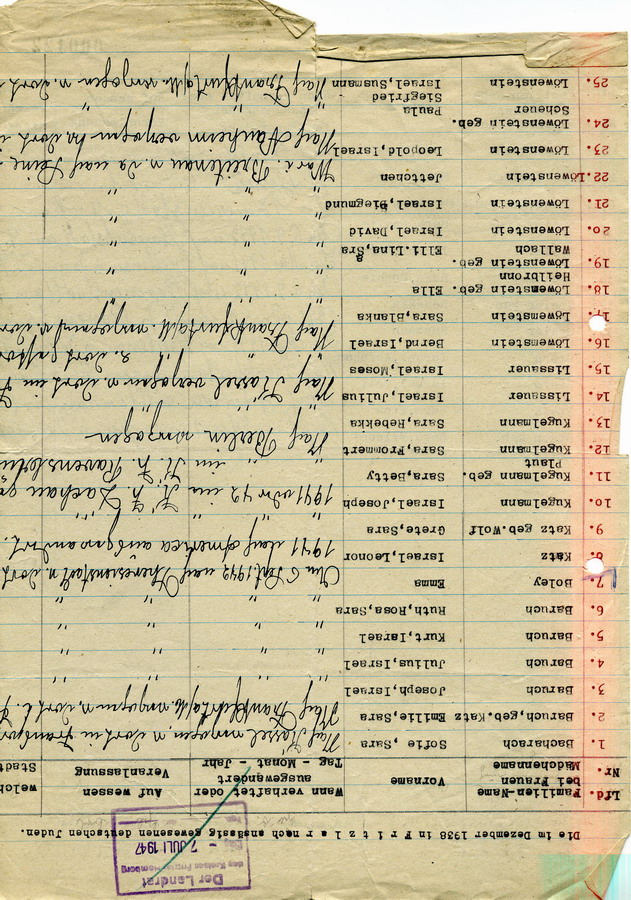 Der Landrat
des Kreises Fritzlar-Homberg
7. JULI 1947
Die im Dezember 1938 in F r i t z l a r noch ansässig gewesenen deutschen Juden.
Lfd. Familien-Name Vorname Wann verhaftet oder Auf wessen welch
Nr. bei Frauen ausgewandert Veranlassung Stadt
Mädchenname Tag - Monat - Jahr
1. Bacharach Sofie, Sara Nach Kassel verzogen u. dort im Transpor
2. Baruch,geb.Katz Emilie, Sara Nach Frankfurt a/M. verzogen u. dort
3. Baruch Joseph,Israel " " "
4. Baruch Julius,Israel " " "
5. Baruch Kurt,Israel " " "
6. Baruch Ruth,Rosa,Sara " " "
7. Boley Emma Am 6. Sept. 1942 nach Theresienstadt u. dort
8. Katz Israel,Leonor 1941 nach Amerika ausgewandert.
9. Katz geb.Wolf Grete,Sara " " "
10. Kugelmann Israel,Joseph 1941 oder 42 im K. Z. Dachau
11. Kugelmann geb. Sara,Betty " " im K. Z. Ravensbrü
Plaut
12. Kugelmann Sara,Frommert Nach Berlin verzogen
13. Kugelmann Sara,Rebekka " "
14. Lissauer Israel,Julius Nach Kassel verzogen u. dort im
15. Lissauer Israel,Moses " " u. dort
16. Löwenstein Bernd,Israel Nach Frankfurt a/M. verzogen u. dor
17. Löwenstein Sara,Blanka " " "
18. Löwenstein geb. Ella
Heilbronn
19. Löwenstein geb. Elli.Lina,Sra " " "
Wallach a
20. Löwenstein Israel,David " " "
21. Löwenstein Israel,Siegmund " " "
22.Löwenstein Jettchen War i. Breitenau u. da nach
23. Löwenstein Leopold,Israel Nach Mauheim verzogen
24. Löwenstein geb. Paula " " "
Scheuer Siegfried
25. Löwenstein Israel,Susmann Nach Frankfurt a/M. verzogen u. dort